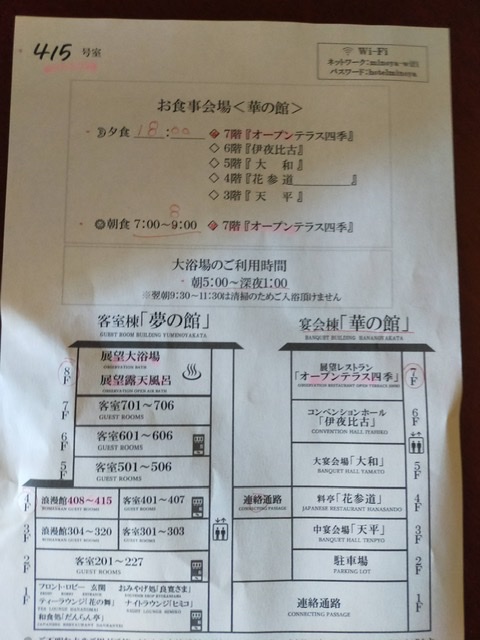 415 号室
Wi-Fi
ネットワーク:minoya-wifi
パスワード:hotelminoya
お食事会場<華の館>
夕食 18:00 ◇ 7階『オープンテラス四季』
◇ 6階『伊夜比古』
◇ 5階『大 和』
◇ 4階『花参道 』
◇ 3階『天 平』
8
朝食 7:00～9:00 ◇ 7階『オープンテラス四季』
大浴場のご利用時間
朝5:00～深夜1:00
※翌朝9:30～11:30は清掃のためご入浴頂けません
客室棟「夢の館」
GUEST ROOM BUILDING YUMENOYAKATA
8F
展望大浴場
OBSERVATION BATH
展望露天風呂
OBSERVATION OPEN AIR BATH
7F
客室701～706
GUEST ROOMS
6F
客室601～606
GUEST ROOMS
5F
客室501～506
GUEST ROOMS
4F
浪漫館408～415
ROMANKAN GUEST ROOMS
客室401～407
GUEST ROOMS
3F
浪漫館304～320
ROMANKAN GUEST ROOMS
客室301～303
GUEST ROOMS
2F
客室201～227
GUEST ROOMS
1F
フロント・ロビー 玄関
ティーラウンジ「花の舞」
和食処「だんらん亭」
おみやげ処「良寛さま」
ナイトラウンジ「ヒミコ」
連絡通路
CONNECTING PASSAGE
連絡通路
CONNECTING PASSAGE
宴会棟「華の館」
BANQUET BUILDING HANANOYAKATA
展望レストラン
「オープンテラス四季」
7F
コンベンションホール
「伊夜比古」
CONVENTION HALL IYAHIKO
6F
大宴会場「大和」
BANQUET HALL YAMATO
5F
料亭「花参道」
JAPANESE RESTAURANT HANASANDO
4F
中宴会場「天平」
BANQUET HALL TENPYO
3F
駐車場
PARKING LOT
2F
1F